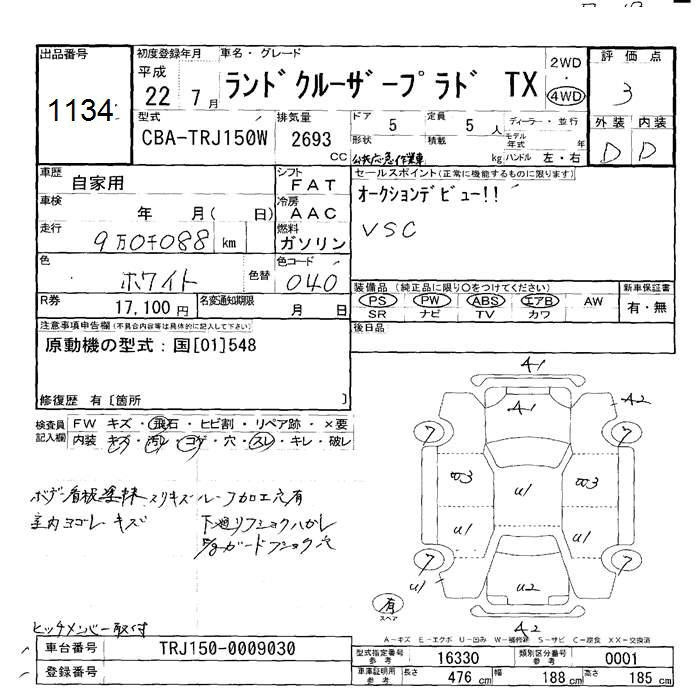 出品番号 1134
初度登録年月 平成 22 7月
車名・グレード ランドクルーザープラド TX
2WD・4WD
評価点 3
型式 CBA-TRJ150W
排気量 2693 CC
ドア 5 定員 5人
形状 積載 kg
公共応急作業車
ディーラー・並行
モデル年式 年
ハンドル 左・右
外装 内装
D D
車歴 自家用
シフト FAT
セールスポイント(正常に機能するものに限ります)
オークションデビュー!!
VSC
車検 年 月( 日)
冷房 AAC
走行 9万0千088 km
燃料 ガソリン
色 ホワイト 色替
色コード 040
装備品 (純正品に限り○をつけてください)
PS PW ABS エアB AW
SR ナビ TV カワ
新車保証書
有・無
R券 17,100円
名変通知期限 月 日
後日品
注意事項申告欄(不具合内容等は具体的に記入して下さい)
原動機の型式:国[01]548
修復歴 有[箇所 ]
検査員記入欄
FW キズ・飛石・ヒビ割・リペア跡・×要
内装 キズ・汚レ・コゲ・穴・スレ・キレ・破レ
ボデー看板塗抹 スリキズ ルーフ加工穴有
室内ヨゴレ キズ
ヒッチメンバー取付
A1
A1 A2
7 7
U3 U1 U3
U1 U1
7 7
U1 U2
A2
有
スペア
A-キズ E-エクボ U-凹み W-補修跡 S-サビ C-腐食 XX-交換済
車台番号 TRJ150-0009030
登録番号
型式指定番号 参考 16330
類別区分番号 参考 0001
車庫証明用 参考 長さ 476 cm 幅 188 cm 高さ 185 cm